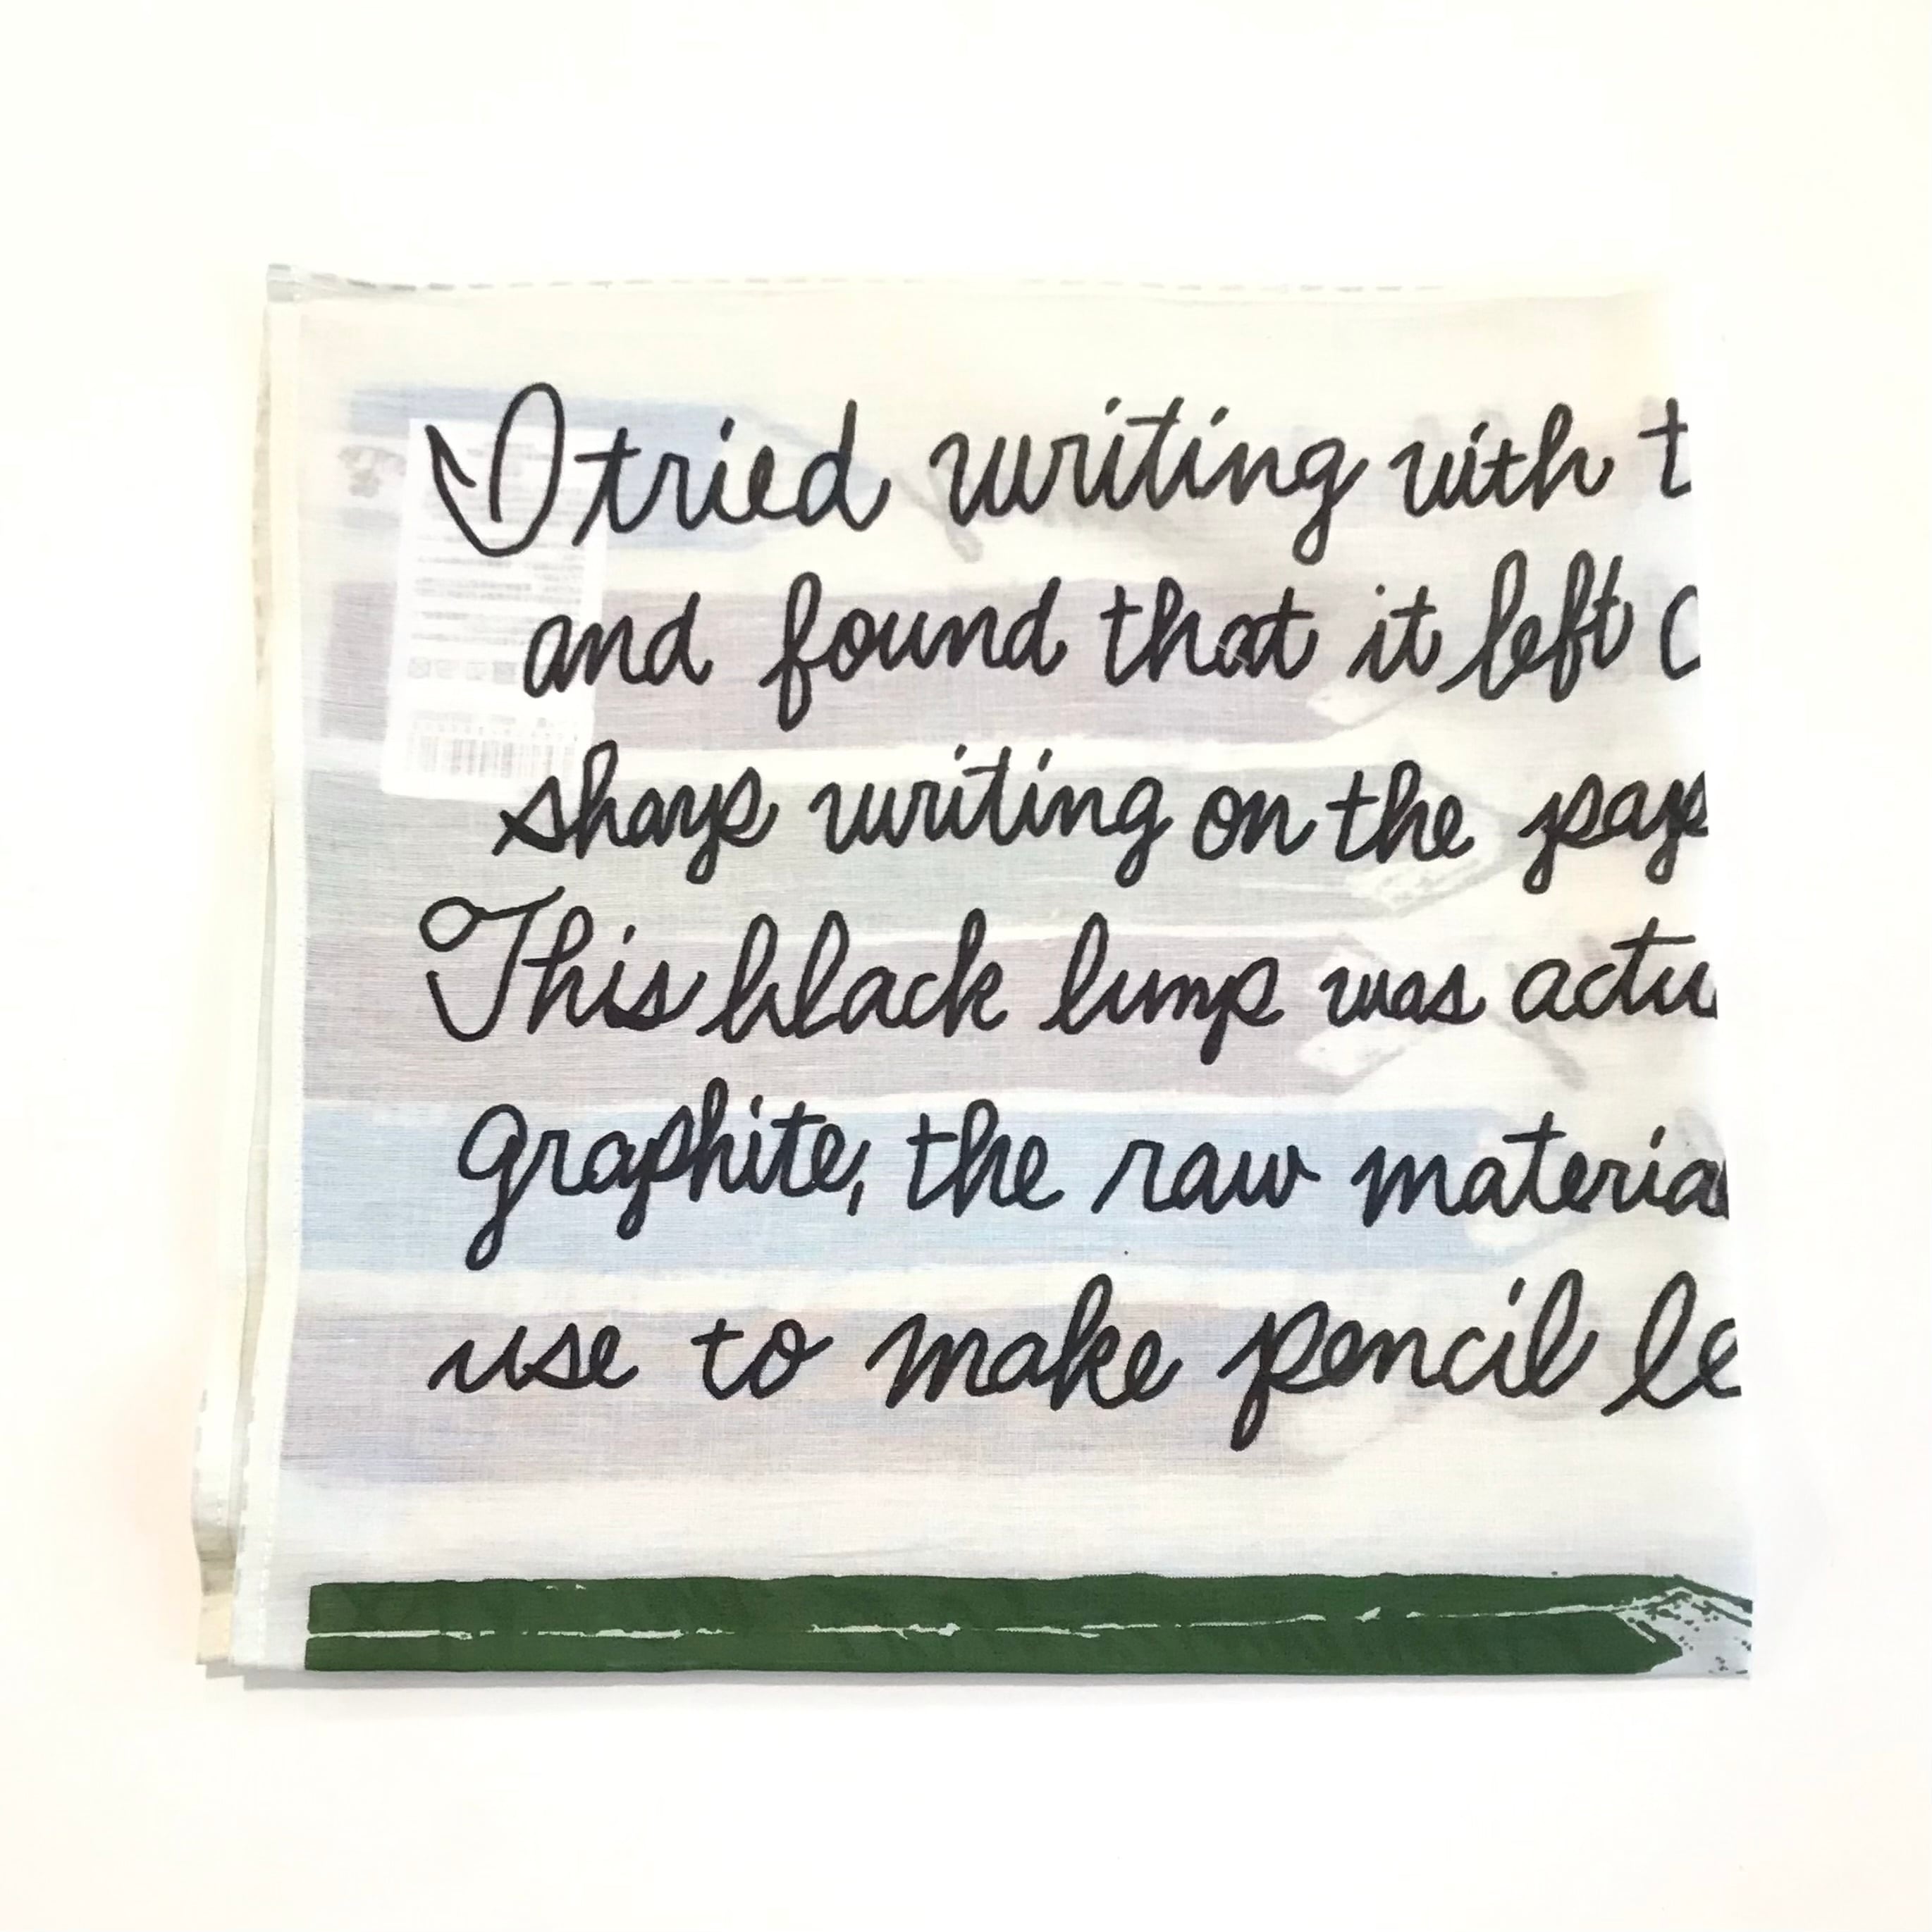 I tried writing with t
and found that it left
sharp writing on the pap
This black lump was actu
graphite, the raw materia
use to make pencil le